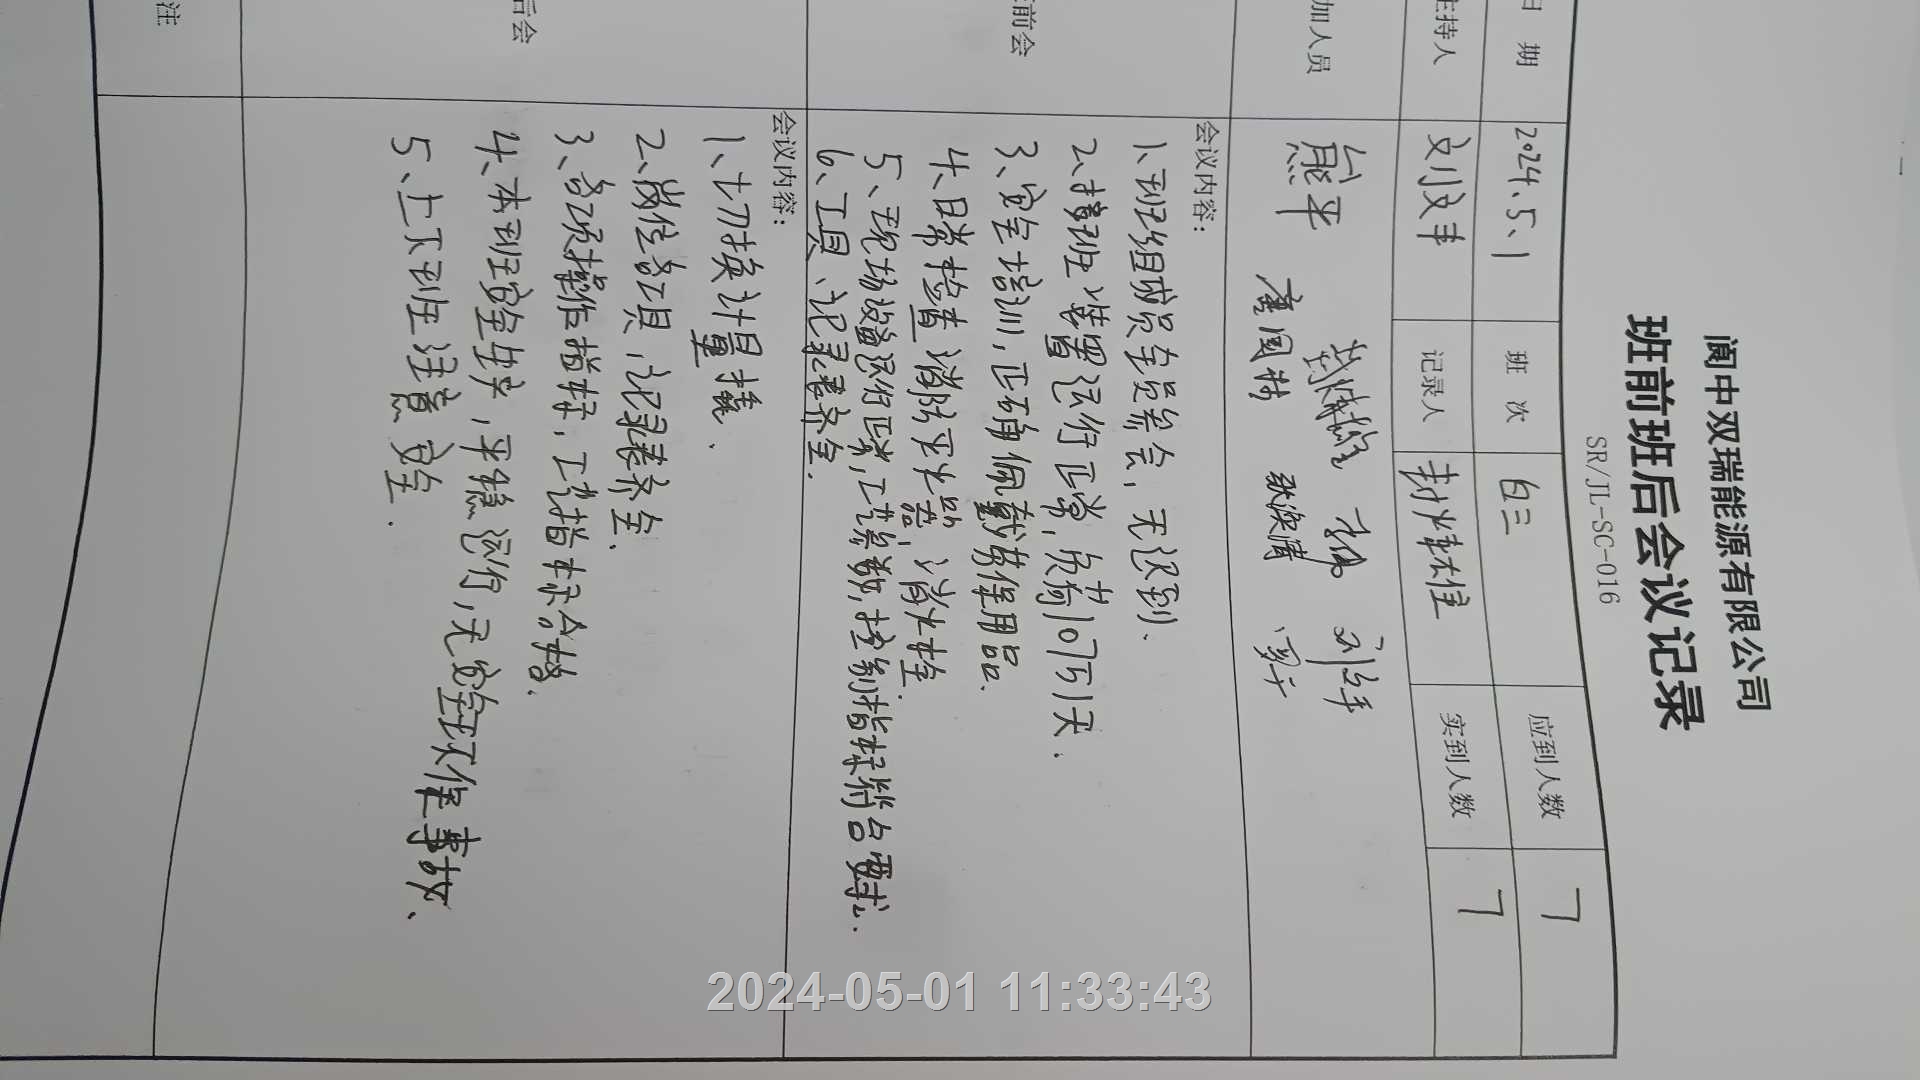 阆中双瑞能源有限公司
班前班后会议记录
SR/JL-SC-016
日 期 2024.5.1 班 次 白三 应到人数 7
主持人 刘文丰 记录人 实到人数 7
加人员 熊平
前会 会议内容:
1、班组成员全员参会，无迟到.
2、接班装置运行正常，负荷107万/天.
3、安全培训，正确佩戴劳保用品.
4、日常检查消防灭火器，消火栓.
5、现场设备运行正常，工艺参数，控制指标符合要求.
6、工具、记录表齐全.
后会 会议内容:
1、切换计量撬.
2、岗位各工具，记录表齐全.
3、各项操作指标，工艺指标合格.
4、本班安全生产，平稳运行，无安全环保事故.
5、上下班注意安全.
注
2024-05-01 11:33:43